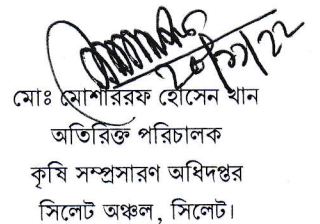 ২০/১১/২২
মোঃ মোশাররফ হোসেন খান
অতিরিক্ত পরিচালক
কৃষি সম্প্রসারণ অধিদপ্তর
সিলেট অঞ্চল, সিলেট।